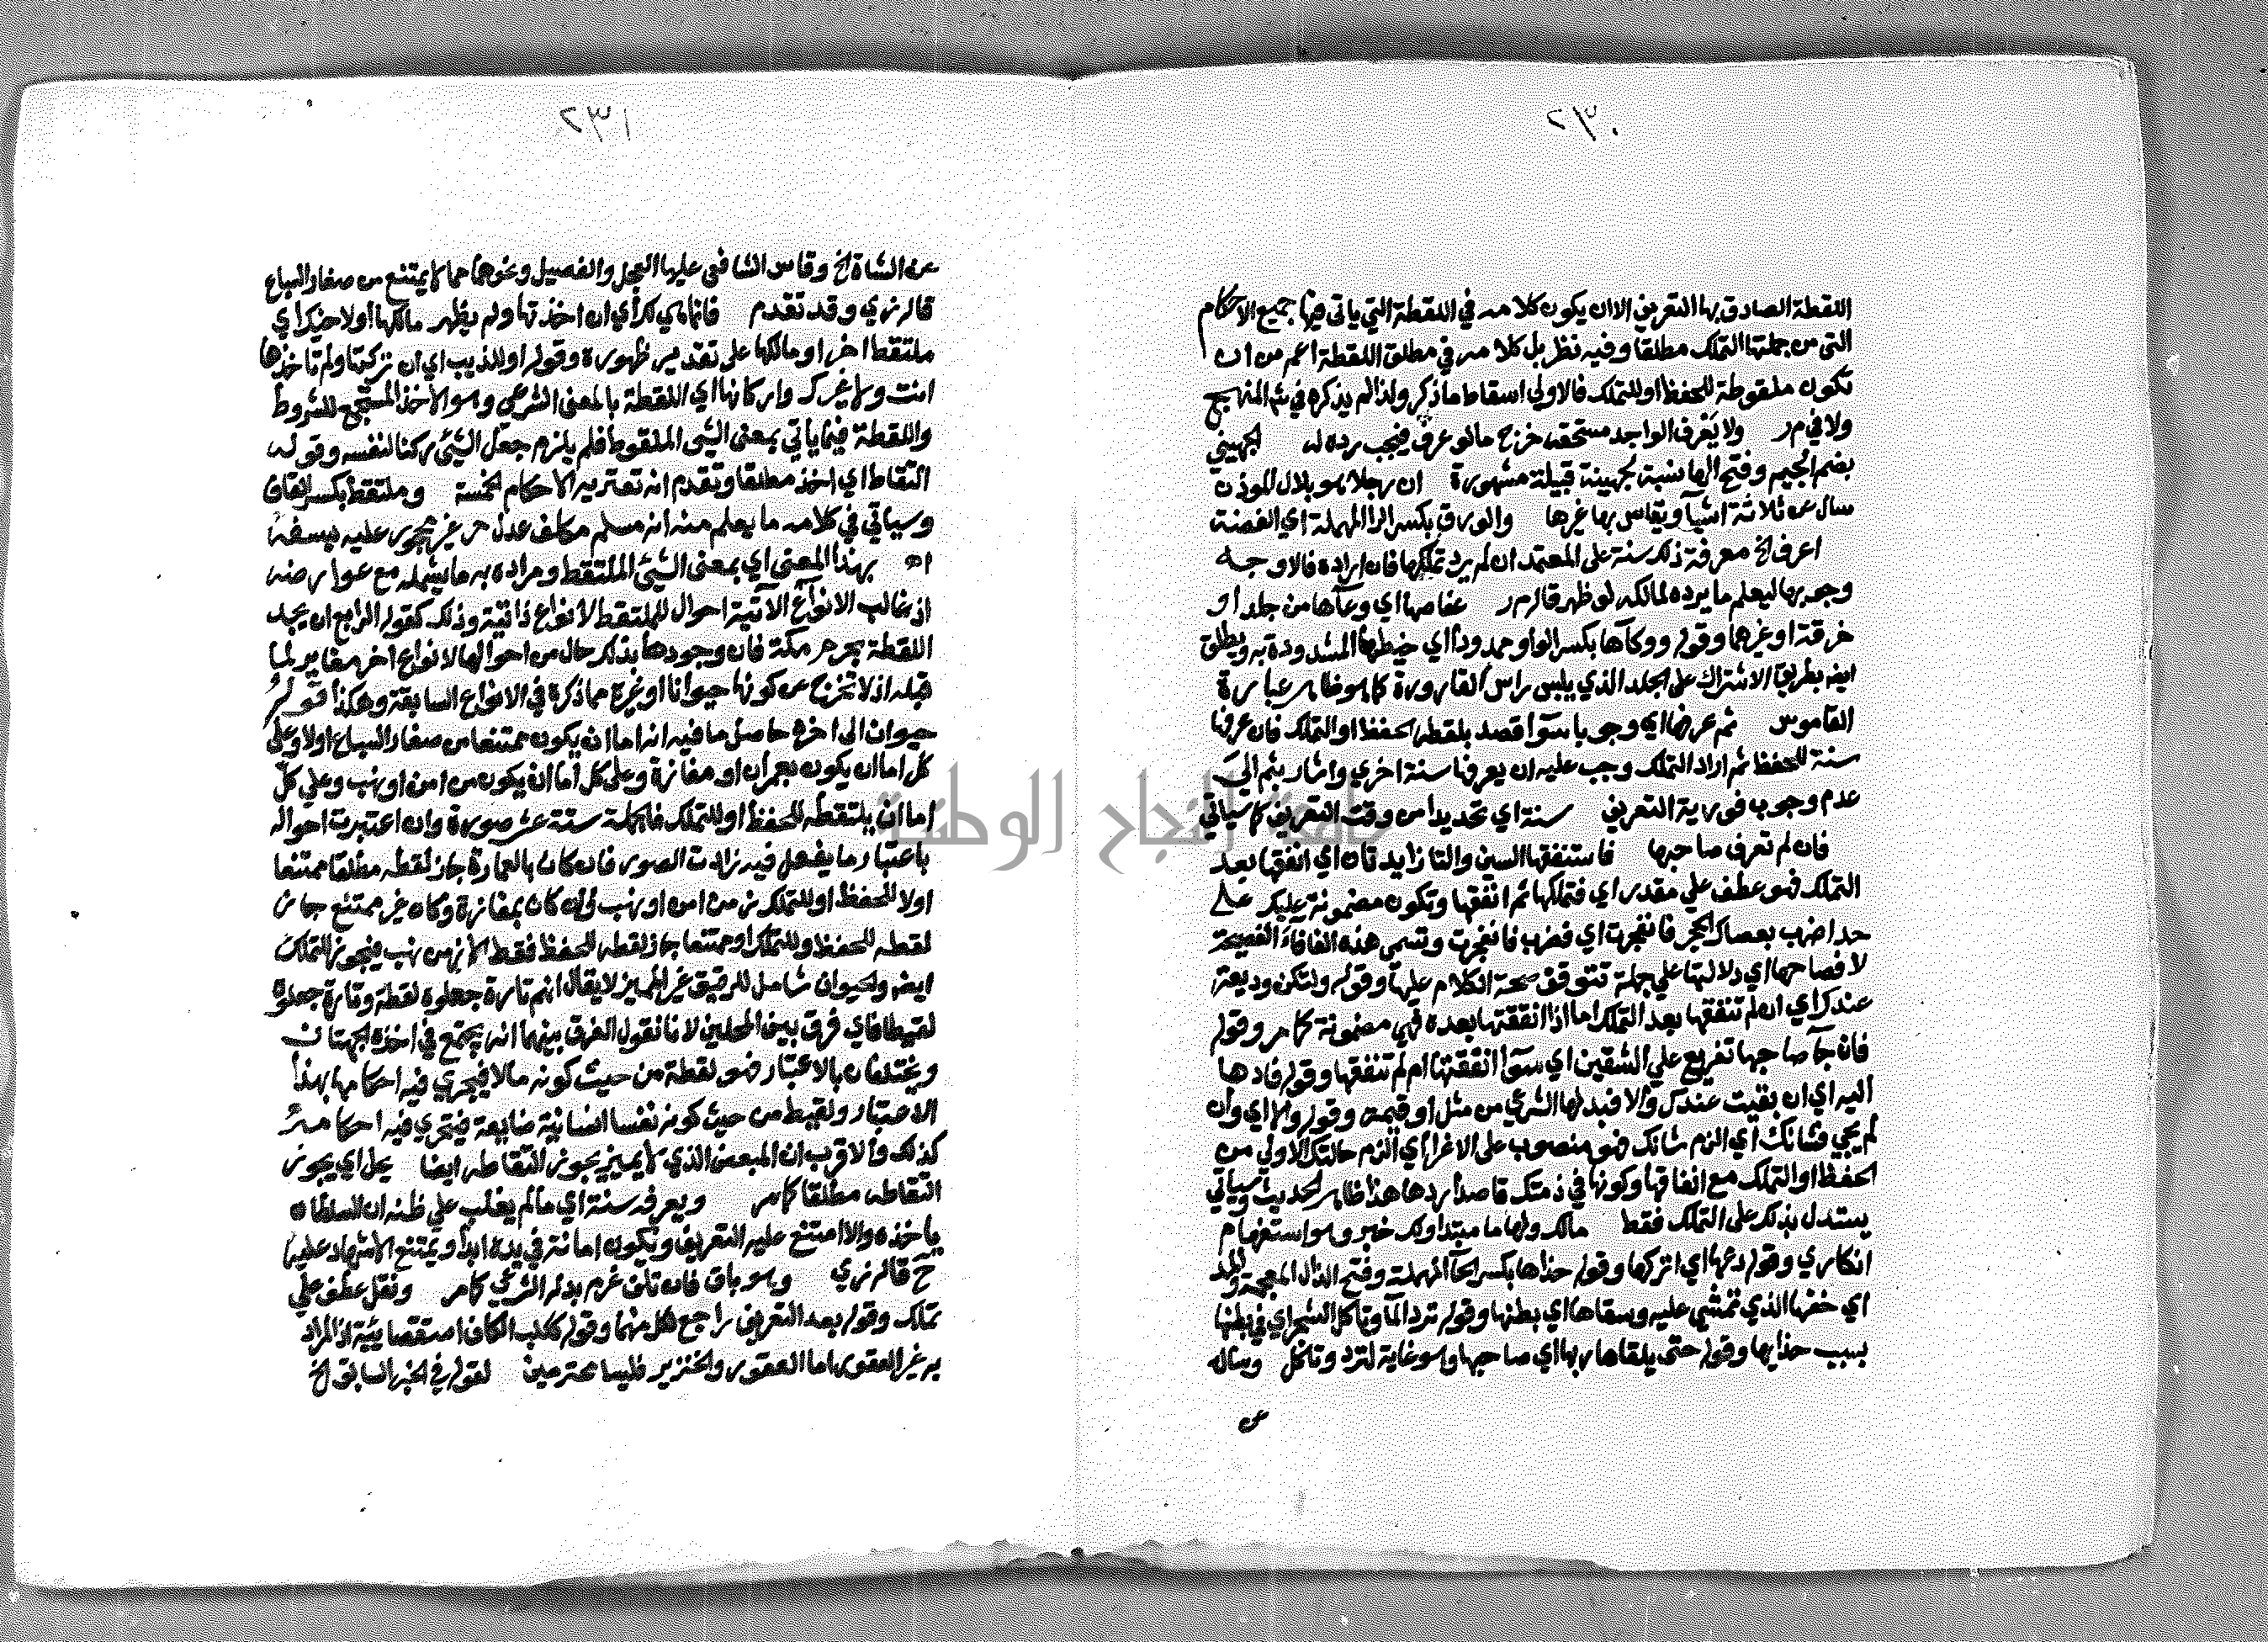 ٢٣٠
اللقطة الصادق بها التعريف الا ان يكون كلامه في اللقطة التي ياتي فيها جميع الاحكام
التي من جملتها التملك مطلقا وفيه نظر بل كلامه في مطلق اللقطة اعم من ان
تكون ملقوطة للحفظ او للتملك فالاولي اسقاط ما ذكر ولذا لم يذكره في شر المنهج
ولا في م ر ولا يَعْرف الواجد مستحقه خرج ما لو عرف فيجب رده له الجهيني
بضم الجيم وفتح الها نسبة لجهينة قبيلة مشهورة ان رجلا هو بلال المؤذن
سال عن ثلاثة اشيآ ويقاس بها غيرها والورق بكسر الرا المهملة اي الفضة
اعرف الخ معرفة ذلك سنة على المعتمد ان لم يرد تملكها فان اراده فالاوجه
وجوبها ليعلم ما يرده لمالكه لو ظهر قاله م ر عفاصها اي وعآها من جلد او
خرقة او غيرهما وقوله ووكآها بكسر الواو ممدودا اي خيطها المشدودة به ويطلق
ايضا بطريق الاشتراك على الجلد الذي يلبس راس القارورة كما هو ظاهر عبارة
القاموس ثم عرفها اي وجوبا سوآ قصد بلقطه الحفظ او التملك فان عرفها
سنة للحفظ ثم اراد التملك وجب عليه ان يعرفها سنة اخري واشار بثم الي
عدم وجوب فورية التعريف سنة اي تحديدا من وقت التعريف كما سياتي
فان لم تعرف صاحبها فاستنفقها السين والتا زايدتان اي انفقها بعد
التملك فهو عطف علي مقدر اي فتملكها ثم انفقها وتكون مضمونة عليك على
حد اضرب بعصاك الحجر فانفجرت اي فضرب فانفجرت وتسمى هذه الفا فآء الفصيحة
لافصاحها اي دلالتها علي جملة تتوقف صحة الكلام عليها وقوله ولتكن وديعة
عندك اي ان لم تنفقها بعد التملك اما اذا انفقتها بعده فهي مضمونة كما مر وقوله
فان جآ صاحبها تفريع علي الشقين اي سوآ انفقتها ام لم تنفقها وقوله فادها
اليه اي ان بقيت عندك والا فبدلها الشرعي من مثل او قيمة وقوله والا اي وان
لم يجي فشانك اي الزم شانك فهو منصوب على الاغرا اي الزم حالتك الاولي من
الحفظ او التملك مع انفاقها وكونها في ذمتك قاصدا ردها هذا ظاهر الحديث وسياتي
يستدل بذلك على التملك فقط مالك ولها ما مبتدا ولك خبر وهو استفهام
انكاري وقوله دعها اي اتركها وقوله حذاها بكسر الحآ المهملة وفتح الذال المعجمة والمد
اي خفها الذي تمشي عليه وسقاها اي بطنها وقوله ترد المآ وتاكل الشجر اي في بطنها
بسبب حذايها وقوله حتى يلقاها ربها اي صاحبها وهو غاية لترد وتاكل وساله
عن
٢٣١
عن الشاة الخ وقاس الشافعي عليها العجل والفصيل ونحوهما مما لا يمتنع من صغار السباع
قاله زي وقد تقدم فانما هي لك اي ان اخذتها ولم يظهر مالكها او لاخيك اي
ملتقط اخر او مالكها على تقدير ظهوره وقوله او للذيب اي ان تركتها ولم تاخذها
انت ولا غيرك واركانها اي اللقطة بالمعنى الشرعي وهو الاخذ المستجمع للشروط
واللقطة فيما ياتي بمعنى الشي الملقوط فلم يلزم جعل الشيئ ركنا لنفسه وقوله
التقاط اي اخذ مطلقا وتقدم انه تعتريه الاحكام الخمسة وملتقط بكسر القاف
وسياتي في كلامه ما يعلم منه انه مسلم مكلف عدل حر غير محجور عليه بسفه
اه بهذا المعنى اي بمعنى الشيئ الملتقط ومراده به ما يشمله مع عوارضه
اذ غالب الانواع الآتية احوال للملتقط لا نواع ذاتية وذلك كقوله الرابع ان يجد
اللقطة بحرم مكة فان وجودها بذلك حال من احوالها لا نواع اخر مغاير لما
قبله اذ لا تخرج عن كونها حيوانا او غيره مما ذكره في الانواع السابقة وهكذا قوله
حيوان الى اخره حاصل ما فيه انه اما ان يكون ممتنعا من صغار السباع او لا وعلى
كل اما ان يكون بعمران او مفازة وعلى كل اما ان يكون من امن او نهب وعلي كل
اما ان يلتقطه للحفظ او للتملك فالجملة ستة عشر صورة وان اعتبرت احواله
باعتبار ما يفعل فيه زادت الصور فان كان بالعمارة جاز لقطه مطلقا ممتنعا
اولا للحفظ او للتملك زمن امن او نهب وان كان بمفازة وكان غير ممتنع جاز
لقطه للحفظ وللتملك او ممتنعا جاز لقطه للحفظ فقط الا زمن نهب فيجوز للتملك
ايضا والحيوان شامل للرقيق غير المميز لا يقال انهم تارة جعلوه لقطة وتارة جعلوه
لقيطا فاي فرق بين المحلين لانا نقول الفرق بينهما انه يجتمع في اخذه الجهتان
ويختلفان بالاعتبار فهو لقطة من حيث كونه مالا فيجري فيه احكامها بهذا
الاعتبار ولقيط من حيث كونه نفسا انسانية ضايعة فيجري فيه احكامه
كذلك والاقرب ان المبعض الذي لا يميز يجوز التقاطه ايضا يحل اي يجوز
التقاطه مطلقا كما مر ويعرفه سنة اي ما لم يغلب علي ظنه ان السلطان
ياخذه والا امتنع عليه التعريف وتكون امانة في يده ابدا ويمتنع الاشهاد عليها
ح قاله زي وهو باق فان تلف غرم بدله الشرعي كما مر ونقل عطف علي
تملك وقوله بعد التعريف راجع لكل منهما وقوله ككلب الكاف استقصاييه اذ المراد
به غير العقور اما العقور والخنزير فليسا محترمين لقوله في الخبر السابق الخ